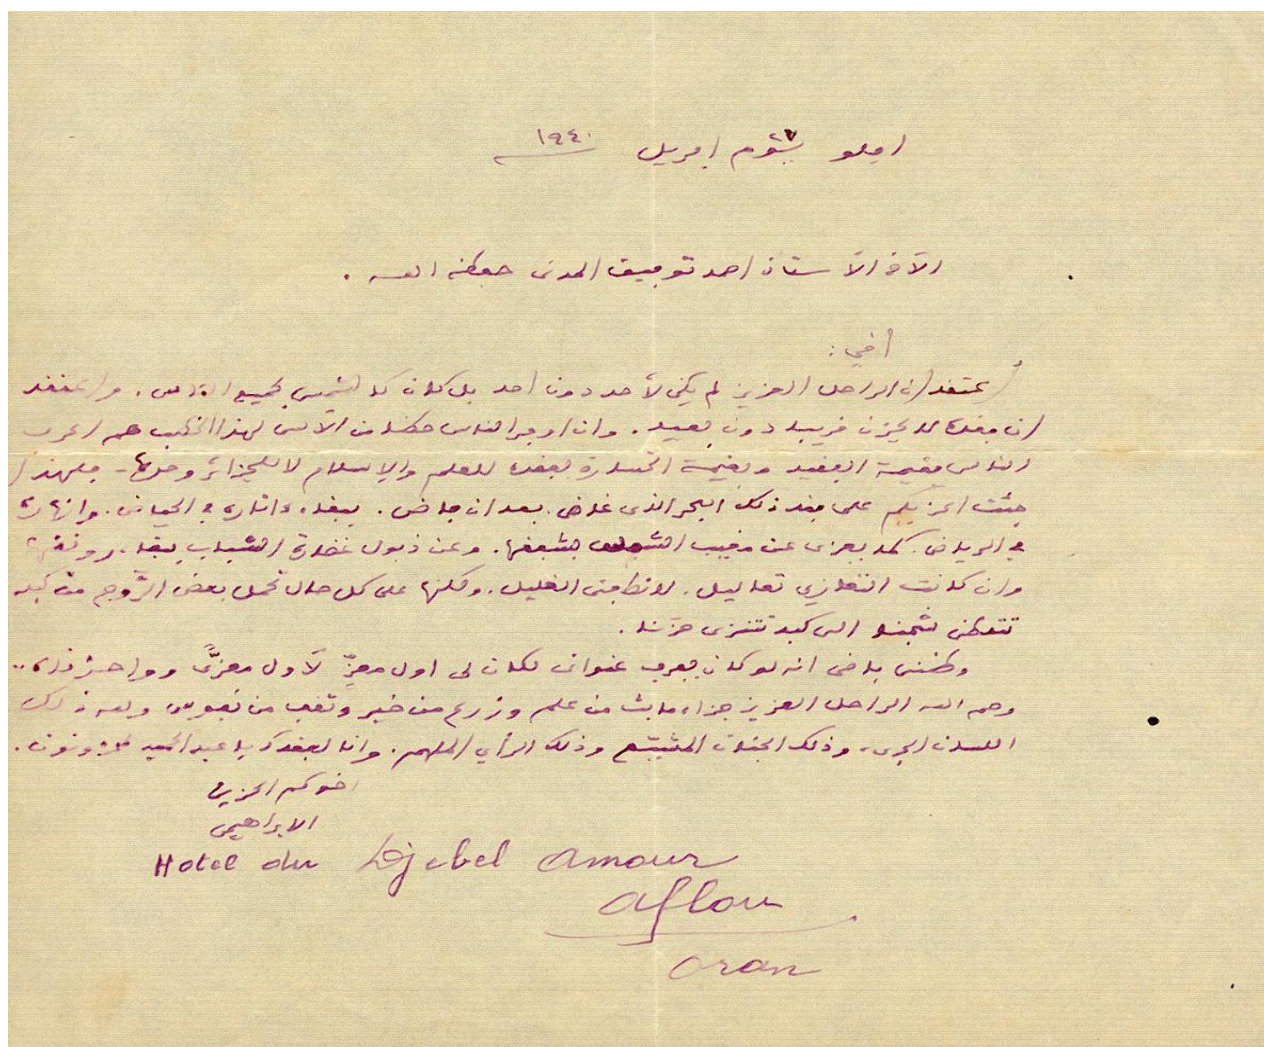 افلو يوم ابريل ١٩٤٠
الأخ الأستاذ احمد توفيق المدني حفظه الله .
أخي :
أعتقد ان الراحل العزيز لم يكن لأحد دون احد بل كان كالشمس لجميع الناس . واعتقد
ان فقده لا يحزن قريبا دون بعيد . وان اوفر الناس حظا من الأسى لهذا الخطب هم اعرف
الناس بقيمة الفقيد وبقيمة الخسارة بفقده للعلم والإسلام لا للجزائر وحدها - فلهذا
جئت اعزيكم على فقد ذلك البحر الذي غاض . بعد ان فاض . ببقاء ءاثاره في الحياض . وانهاره
في الرياض . كما يعزى عن مغيب الشمس بشفقها . وعن ذبول غضارة الشباب ببقاء رونقها
وان كانت التعازي تعاليل . لا تطفئ الغليل . ولكنها على كل حال تحمل بعض الرَّوح من كبد
تتقطى شجنا الى كبد تتنزى حزنا .
وظني يا اخي انه لو كان يعرف عنواني لكان لي اول معزٍّ لأول معزًّى ..
رحم الله الراحل العزيز جزاء ما بث من علم وزرع من خير وثقف من نفوس ولله ذلك
اللسان الجريء وذلك الجنان المشيع وذلك الرأي الملهم . وانا لفقدك يا عبد الحميد لمحزونون .
اخوكم الحزين
الابراهيمي
Hotel du Djebel Amour
Aflou
Oran